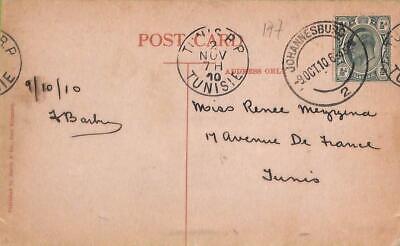 197
POST CARD
ADDRESS ONLY
TUNIS R.P.
NOV
7 H
10
TUNISIE
JOHANNESBURG
9 OCT 10 6
2
R.P.
TUNISIE
9/10/10
Miss Renee Meyzina
17 Avenue De France
Tunis